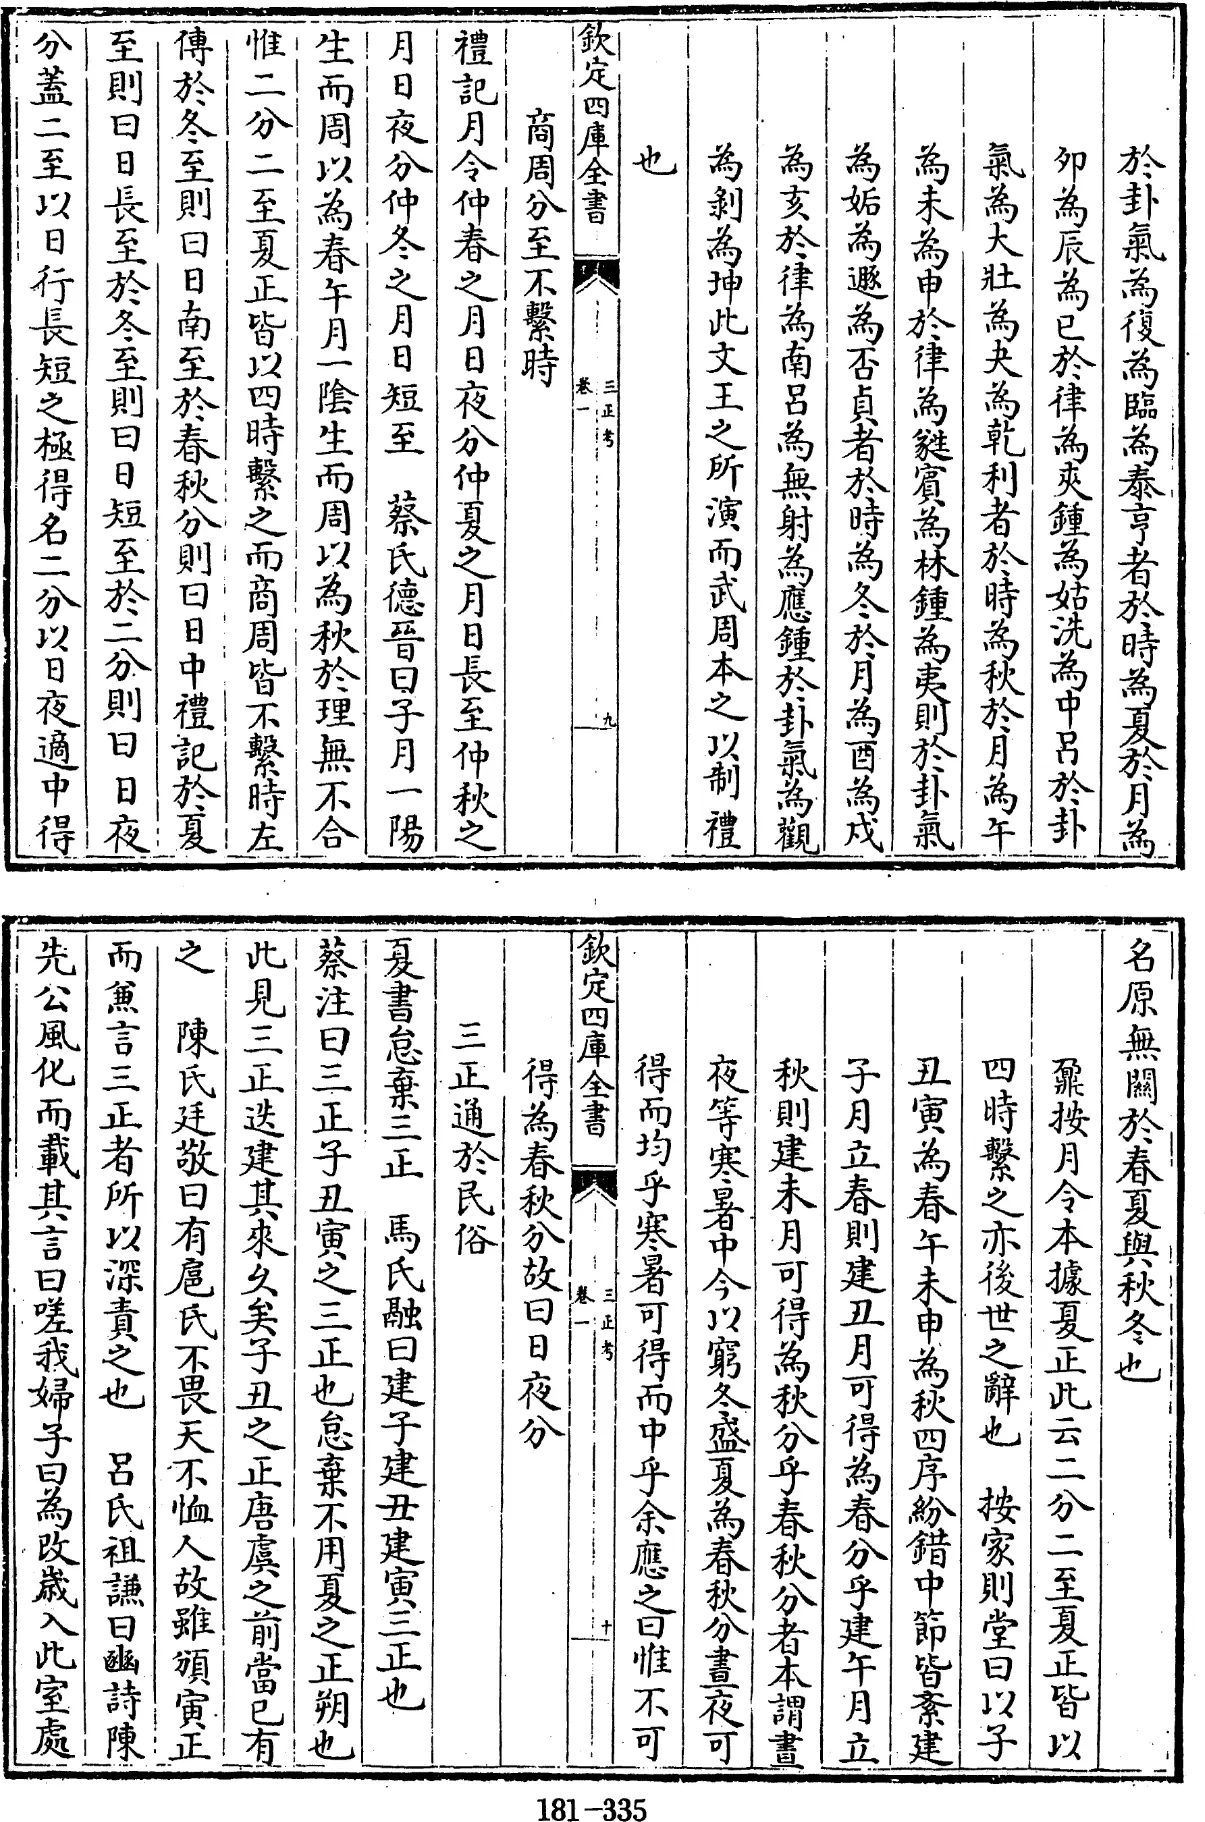 於卦氣為復為臨為泰亨者於時為夏於月為
卯為辰為巳於律為夾鍾為姑洗為中呂於卦
氣為大壯為夬為乾利者於時為秋於月為午
為未為申於律為蕤賓為林鍾為夷則於卦氣
為姤為遯為否貞者於時為冬於月為酉為戍
為亥於律為南呂為無射為應鍾於卦氣為觀
為剝為坤此文王之所演而武周本之以制禮
也
欽定四庫全書
三正考
卷一
九
商周分至不繫時
禮記月令仲春之月日夜分仲夏之月日長至仲秋之
月日夜分仲冬之月日短至 蔡氏德晉曰子月一陽
生而周以為春午月一陰生而周以為秋於理無不合
惟二分二至夏正皆以四時繫之而商周皆不繫時左
傳於冬至則曰日南至於春秋分則曰日中禮記於夏
至則曰日長至於冬至則曰日短至於二分則曰日夜
分蓋二至以日行長短之極得名二分以日夜適中得
名原無關於春夏與秋冬也
鼐按月令本據夏正此云二分二至夏正皆以
四時繫之亦後世之辭也 按家則堂曰以子
丑寅為春午未申為秋四序紛錯中節皆紊建
子月立春則建丑月可得為春分乎建午月立
秋則建未月可得為秋分乎春秋分者本謂晝
夜等寒暑中今以窮冬盛夏為春秋分晝夜可
得而均乎寒暑可得而中乎余應之曰惟不可
欽定四庫全書
三正考
卷一
十
得為春秋分故曰日夜分
三正通於民俗
夏書怠棄三正 馬氏融曰建子建丑建寅三正也
蔡注曰三正子丑寅之三正也怠棄不用夏之正朔也
此見三正迭建其來久矣子丑之正唐虞之前當已有
之 陳氏廷敬曰有扈氏不畏天不恤人故雖頒寅正
而兼言三正者所以深責之也 呂氏祖謙曰豳詩陳
先公風化而載其言曰嗟我婦子曰為改歲入此室處
181-335